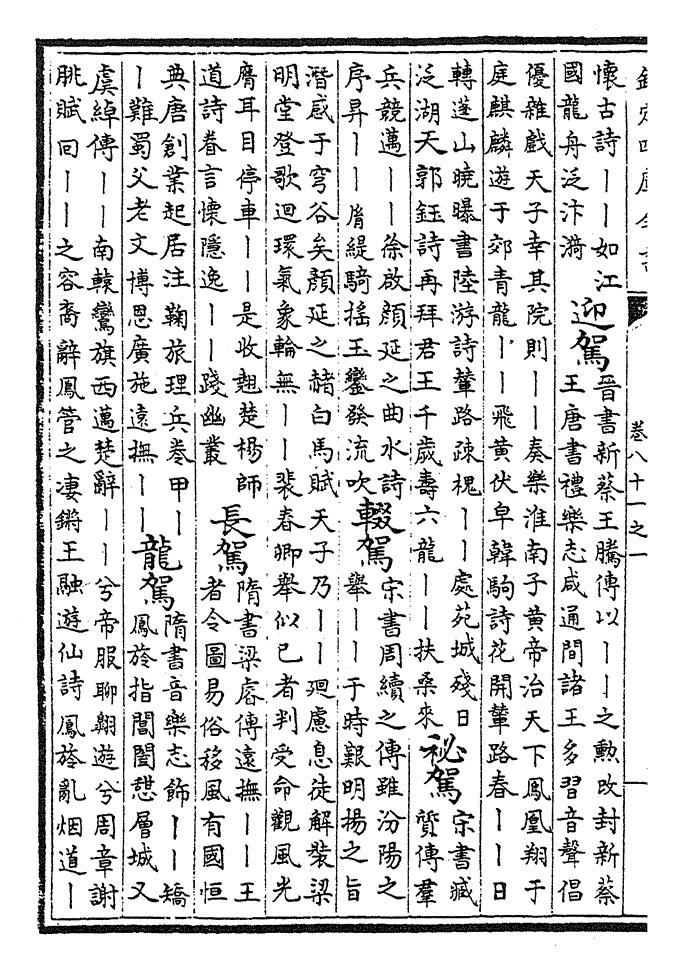 欽定四庫全書
卷八十一之一
一
懷古詩丨丨如江
國龍舟泛汴漪
迎駕
晉書新蔡王騰傳以丨丨之勲改封新蔡
王唐書禮樂志咸通間諸王多習音聲倡
優雜戲天子幸其院則丨丨奏樂淮南子黄帝治天下鳳凰翔于
庭麒麟遊于郊青龍丨丨飛黄伏皁韓駒詩花開輦路春丨丨日
轉蓬山曉曝書陸游詩輦路疎槐丨丨處苑城殘日
泛湖天郭鈺詩再拜君王千歲壽六龍丨丨扶桑來
祕駕
宋書臧
質傳羣
兵競邁丨丨徐啟顔延之曲水詩
序昇丨丨胤緹騎揺玉鑾發流吹
輟駕
宋書周續之傳雖汾陽之
舉丨丨于時艱明揚之旨
潛感于穹谷矣顔延之赭白馬賦天子乃丨丨廻慮息徒解裝梁
明堂登歌迴環氣象輪無丨丨裴春卿舉似已者判受命觀風光
膺耳目停車丨丨是收翹楚楊師
道詩眷言懷隱逸丨丨踐幽叢
長駕
隋書梁睿傳遠撫丨丨王
者令圖易俗移風有國恒
典唐創業起居注鞠旅理兵卷甲丨
丨難蜀父老文博恩廣施遠撫丨丨
龍駕
隋書音樂志飾丨丨矯
鳳旍指閶闔憇層城又
虞綽傳丨丨南轅鸞旗西邁楚辭丨丨兮帝服聊翺遊兮周章謝
朓賦囘丨丨之容裔辭鳳管之凄鏘王融遊仙詩鳳旍亂烟道丨